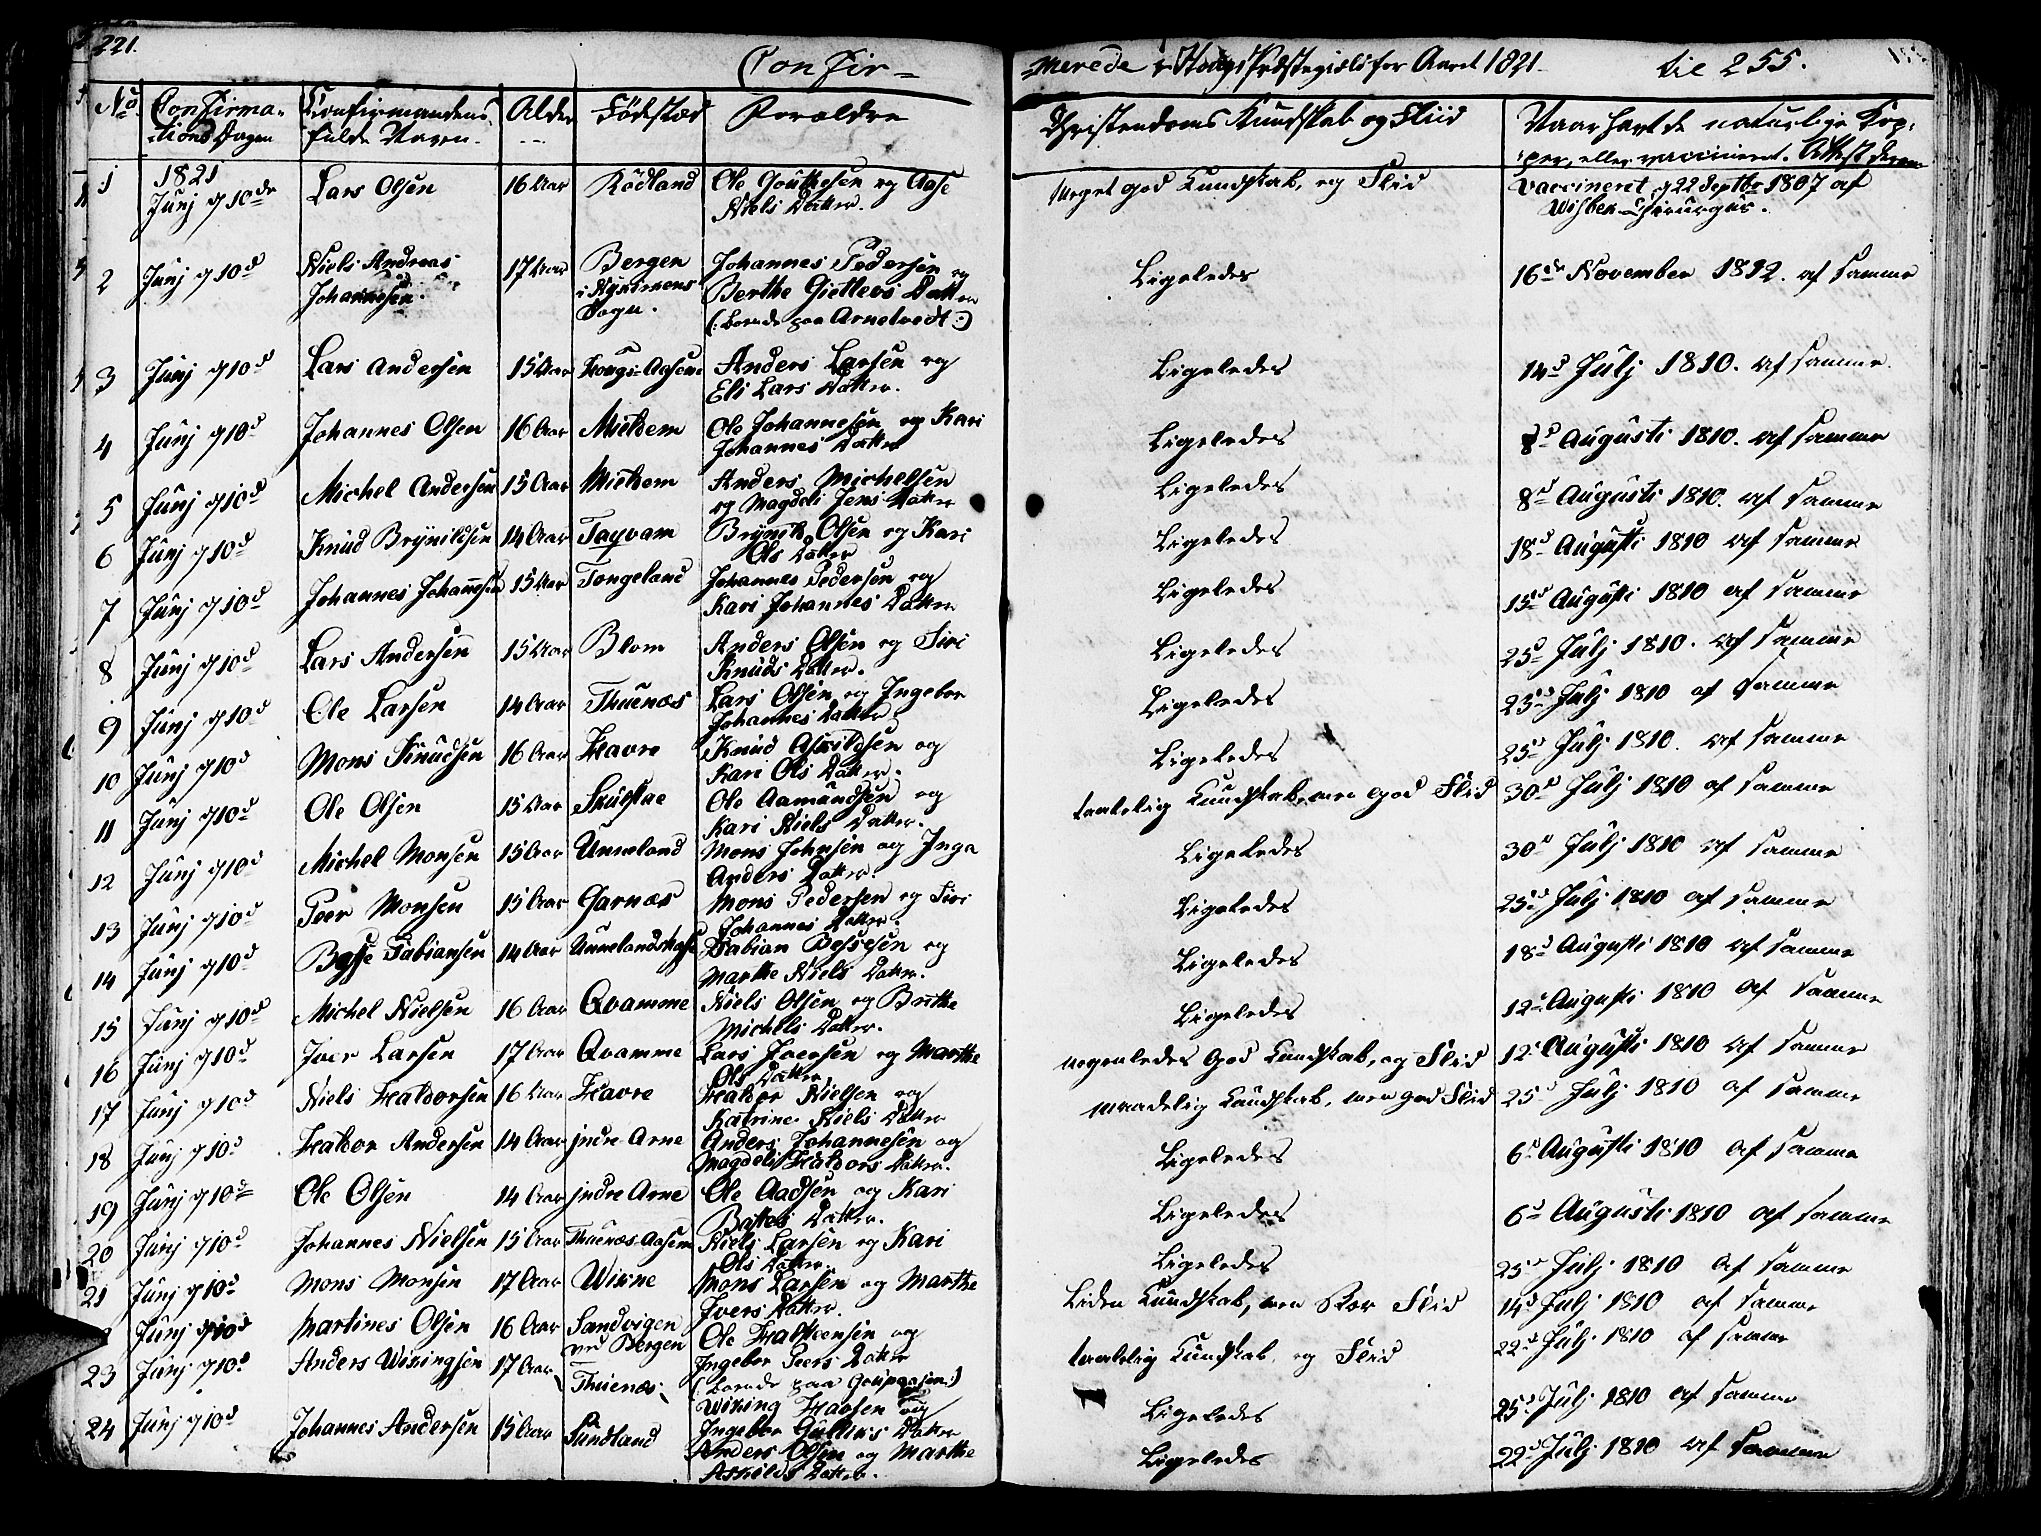 221.
Confir= merede i Hougs Præstegield for Aaret 1821. til 255.
No. Confirmations Dagen Confirmandens fulde Navn. Alder Födstæd Forældre Christendoms Kundskab og Fliid Naar havt de naturlige Kopper, eller vaccineret. Attest derom
1 1821 Junj d 10de Lars Olsen 16 Aar Rödland Ole Gouthesen og Aase Niels Datter. meget god Kundskab, og Flid Vaccineret d 22 Septbr 1807 af Wisbek Chirurgus.
2 Junj d 10d Niels Andreas Johannesen. 17 Aar Bergen i Nykirkens Sogn. Johannes Pedersen og Berthe Gietlevs Datter (: boende paa Arnetvedt :) Ligeledes 16de November 1812. af samme
3 Junj d 10d Lars Andersen 15 Aar Hougs-Aasene Anders Larsen og Eli Lars Datter. Ligeledes 14d Julj 1810. af samme.
4 Junj d 10d Johannes Olsen 16 Aar Mieldem Ole Johannesen og Kari Johannes Datter Ligeledes 8d Augusti 1810. af samme
5 Junj d 10d Michel Andersen 15 Aar Mieldem Anders Michelsen og Magdeli Jens Datter Ligeledes 8d Augusti 1810. af samme
6 Junj d 10d Knud Brynildsen 14 Aar Tayvam Brynild Olsen og Kari Ols Datter Ligeledes 18d Augusti 1810 af samme
7 Junj d 10d Johannes Johannesen 15 Aar Tongeland Johannes Pedersen og Kari Johannes Datter Ligeledes 15d Augusti 1810 af samme
8 Junj d 10d Lars Andersen 15 Aar Blom Anders Olsen og Siri Knuds Datter. Ligeledes 25d Julj 1810. af samme
9 Junj d 10d Ole Larsen 14 Aar Thuenæs Lars Olsen og Ingebor Johannes Datter Ligeledes 25d Julj 1810 af samme
10 Junj d 10d Mons Knudsen 16 Aar Havre Knud Askildsen og Kari Ols Datter. Ligeledes 25d Julj 1810. af samme
11 Junj d 10d Ole Olsen 15 Aar Skulstae Ole Aamundsen og Kari Niels Datter. taalelig Kundskab, men god Flid 30d Julj 1810 af samme
12 Junj d 10d Michel Monsen 15 Aar Unneland Mons Johnsen og Inga Anders Datter. Ligeledes 30d Julj 1810 af samme
13 Junj d 10d Peer Monsen 15 Aar Garnæs Mons Pedersen og Siri Johannes Datter. Ligeledes 25d Julj 1810 af samme
14 Junj d 10d Besse Fabiansen 14 Aar Fabian Bessesen og Marthe Niels Datter. Ligeledes 18d Augusti 1810 af samme
15 Junj d 10d Michel Nielsen 16 Aar Qvamme Niels Olsen og Brithe Michels Datter. Ligeledes 12d Augusti 1810 af samme
16 Junj d 10d Iver Larsen 17 Aar Qvamme Lars Iversen og Marthe Ols Datter nogenledes god Kundskab, og Flid 12d Augusti 1810 af samme
17 Junj d 10d Niels Haldorsen 16 Aar Havre Haldor Nielsen og Katrine Niels Datter maadelig Kundskab, men god Flid 25d Julj 1810 af samme
18 Junj d 10d Haldor Andersen 14 Aar jndre Arne Anders Johannesen og Magdeli Haldors Datter. Ligeledes 6d Augusti 1810 af samme
19 Junj d 10d Ole Olsen 14 Aar jndre Arne Ole Aadsen og Kari Datter. Ligeledes 6d Augusti 1810 af samme
20 Junj d 10d Johannes Nielsen 15 Aar Thuenæs-Aasene Niels Larsen og Kari Ols Datter Ligeledes 25d Julj 1810 af samme
21 Junj d 10d Mons Monsen 17 Aar Wikne Mons Larsen og Marthe Ivers Datter. Liden Kundskab, men Stor Flid 14d Julj 1810 af samme
Junj d 10d Martines Olsen 16 Aar Sandvigen ved Bergen Ole Halstensen og Ingebor Peers Datter (: boende paa :) taalelig Kundskab og Flid 22d Julj 1810 af samme
23 Junj d 10d Anders Wikingsen 17 Aar Thuenæs Wiking Haasen og Ingebor Gulliks Datter Ligeledes 25d Julj 1810 af samme
24 Junj d 10d Johannes Andersen 15 Aar Sundland Anders Olsen og Marthe Askilds Datter. Ligeledes 22d Julj 1810 af samme